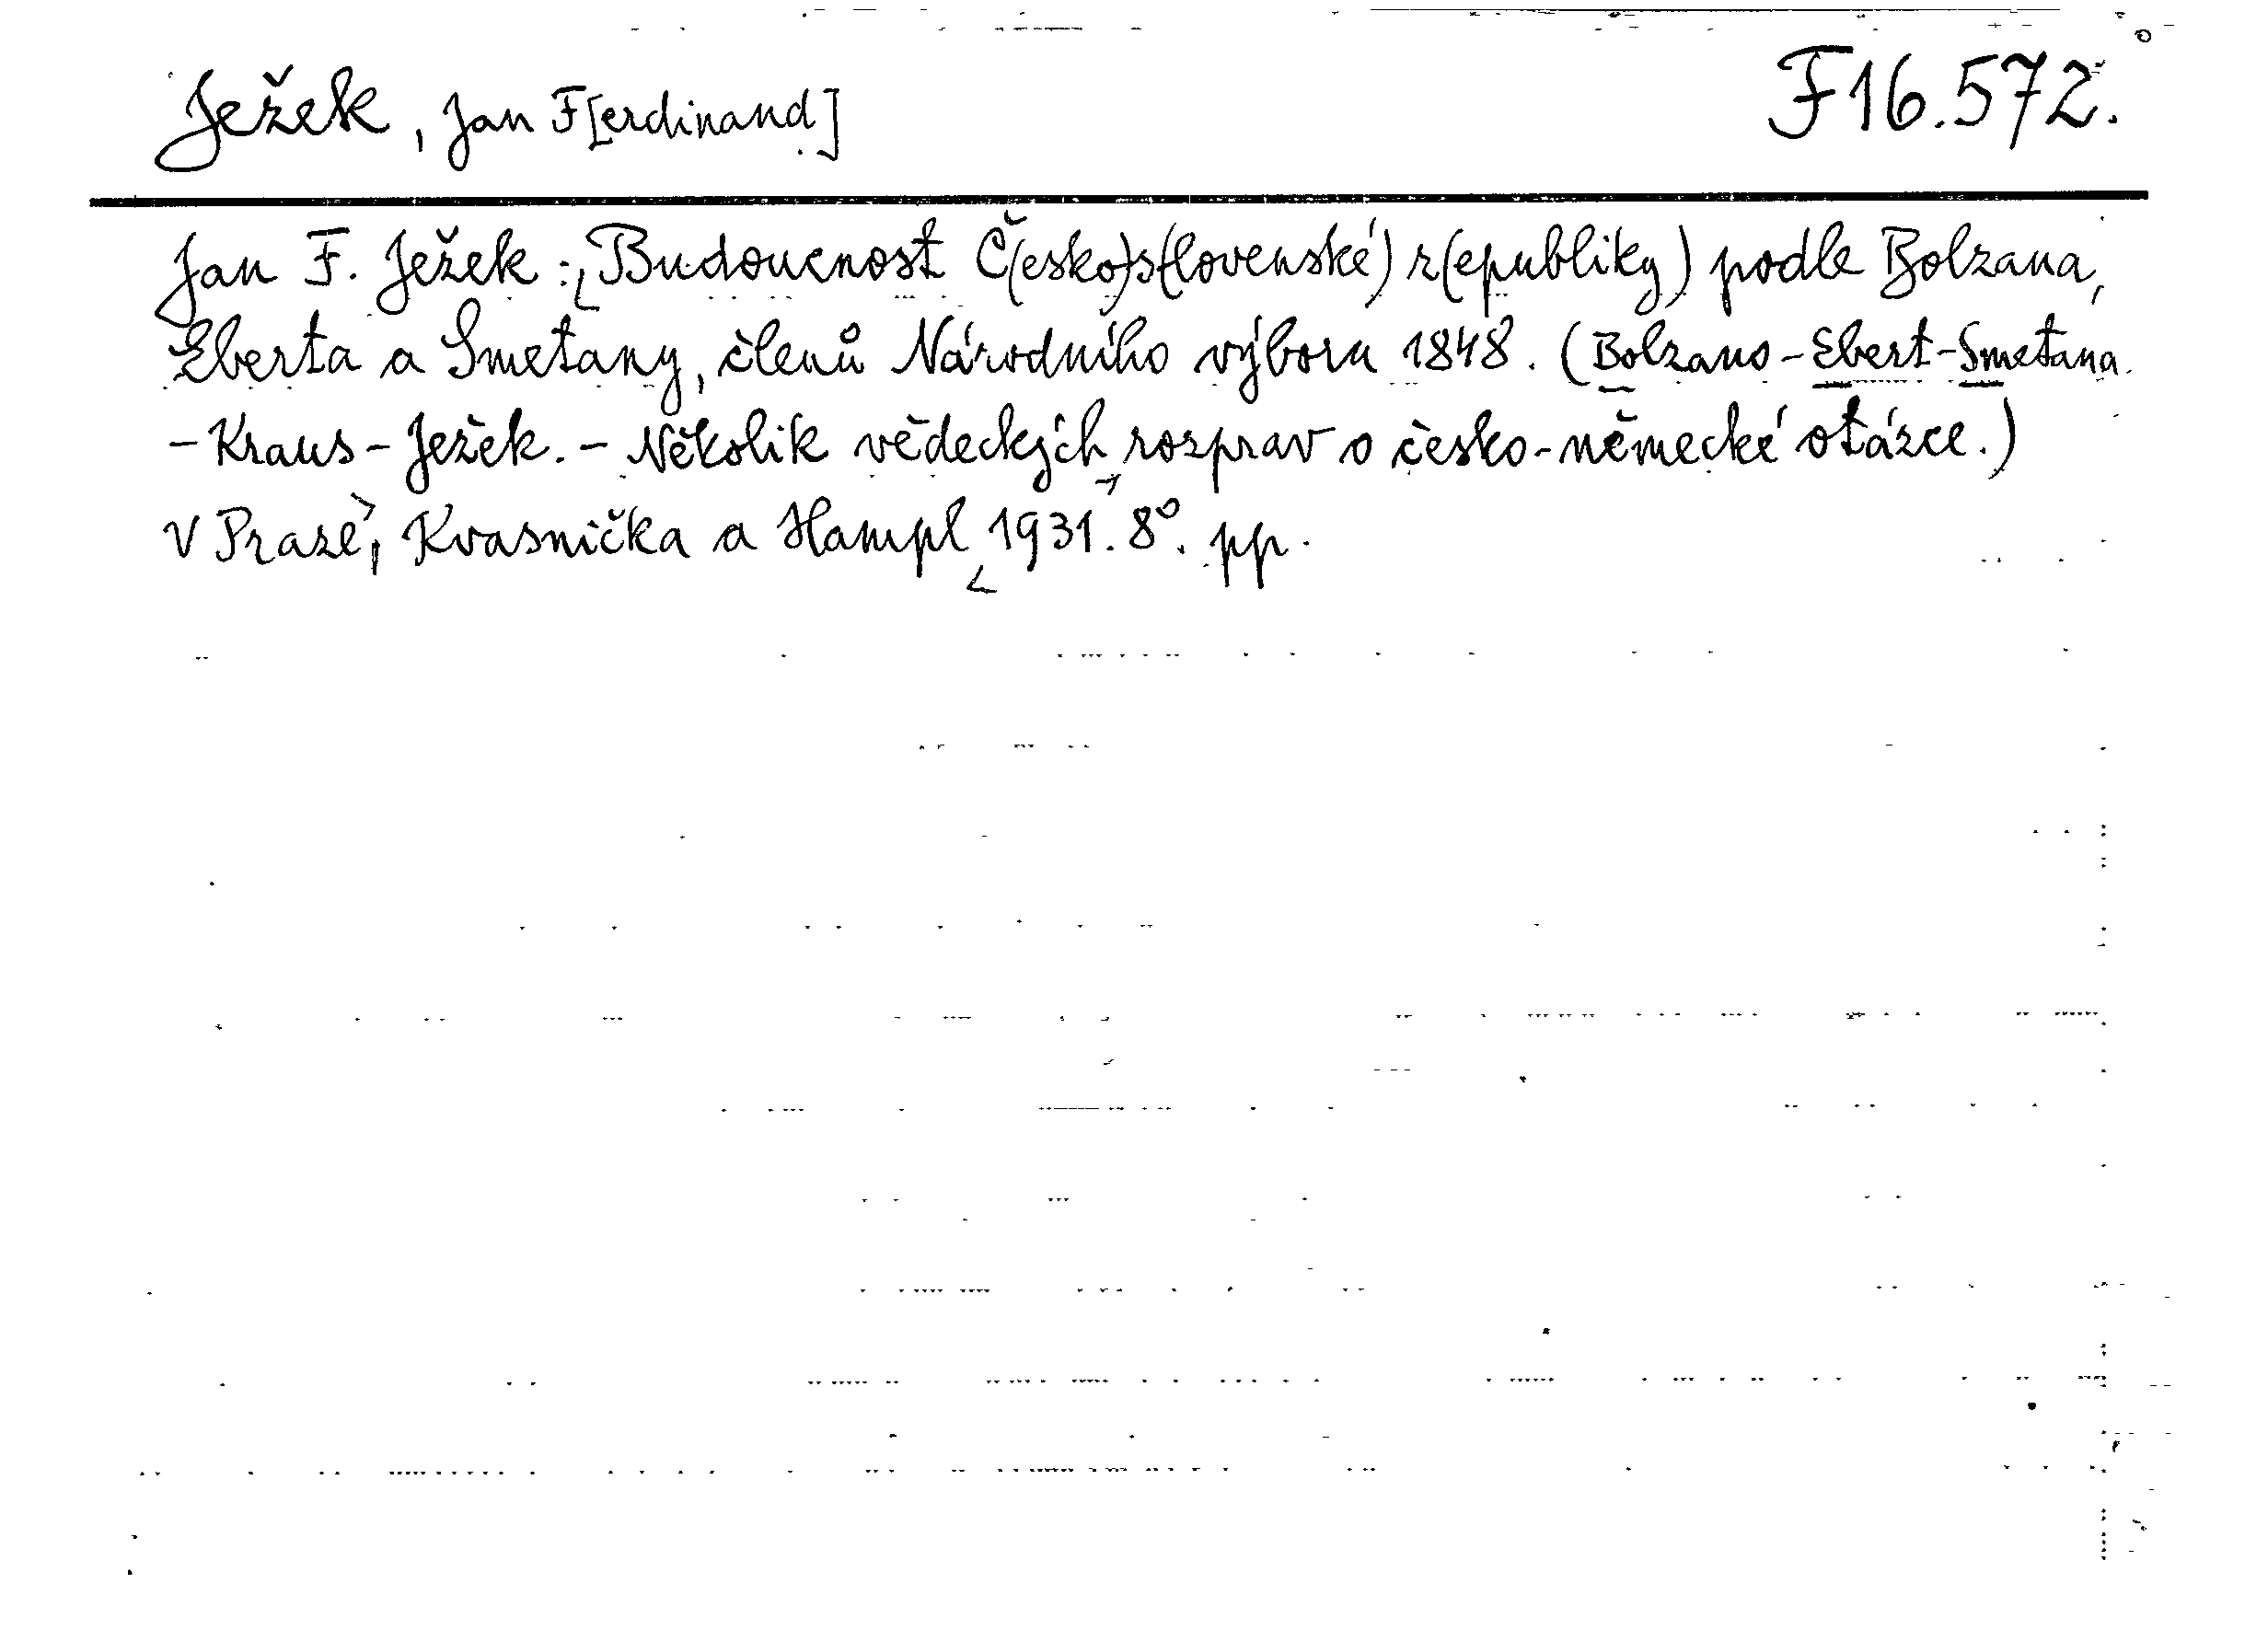 Ježek, Jan F[erdinand] F16.572.
Jan F. Ježek: Budoucnost Č(esko)s(lovenské) r(epubliky) podle Bolzana,
Eberta a Smetany, členů Národního výboru 1848. (Bolzano-Ebert-Smetana
-Kraus-Ježek.-Několik vědeckých rozprav o česko-německé otázce.)
V Praze, Kvasnička a Hampl 1931. 8°. pp.